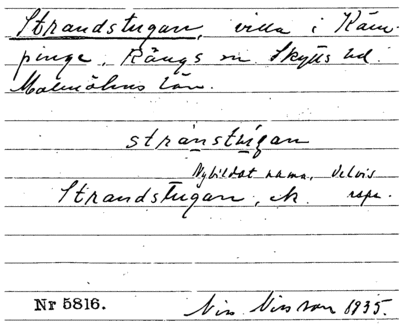 Strandstugan, villa i Käm-
pinge, Rängs sn Skytts hd.
Malmöhus län.
stranstugan
Nybildat namn. Delvis
Strandstugan, ek. rspr.
Nr 5816.
Nils Nilsson 1935.